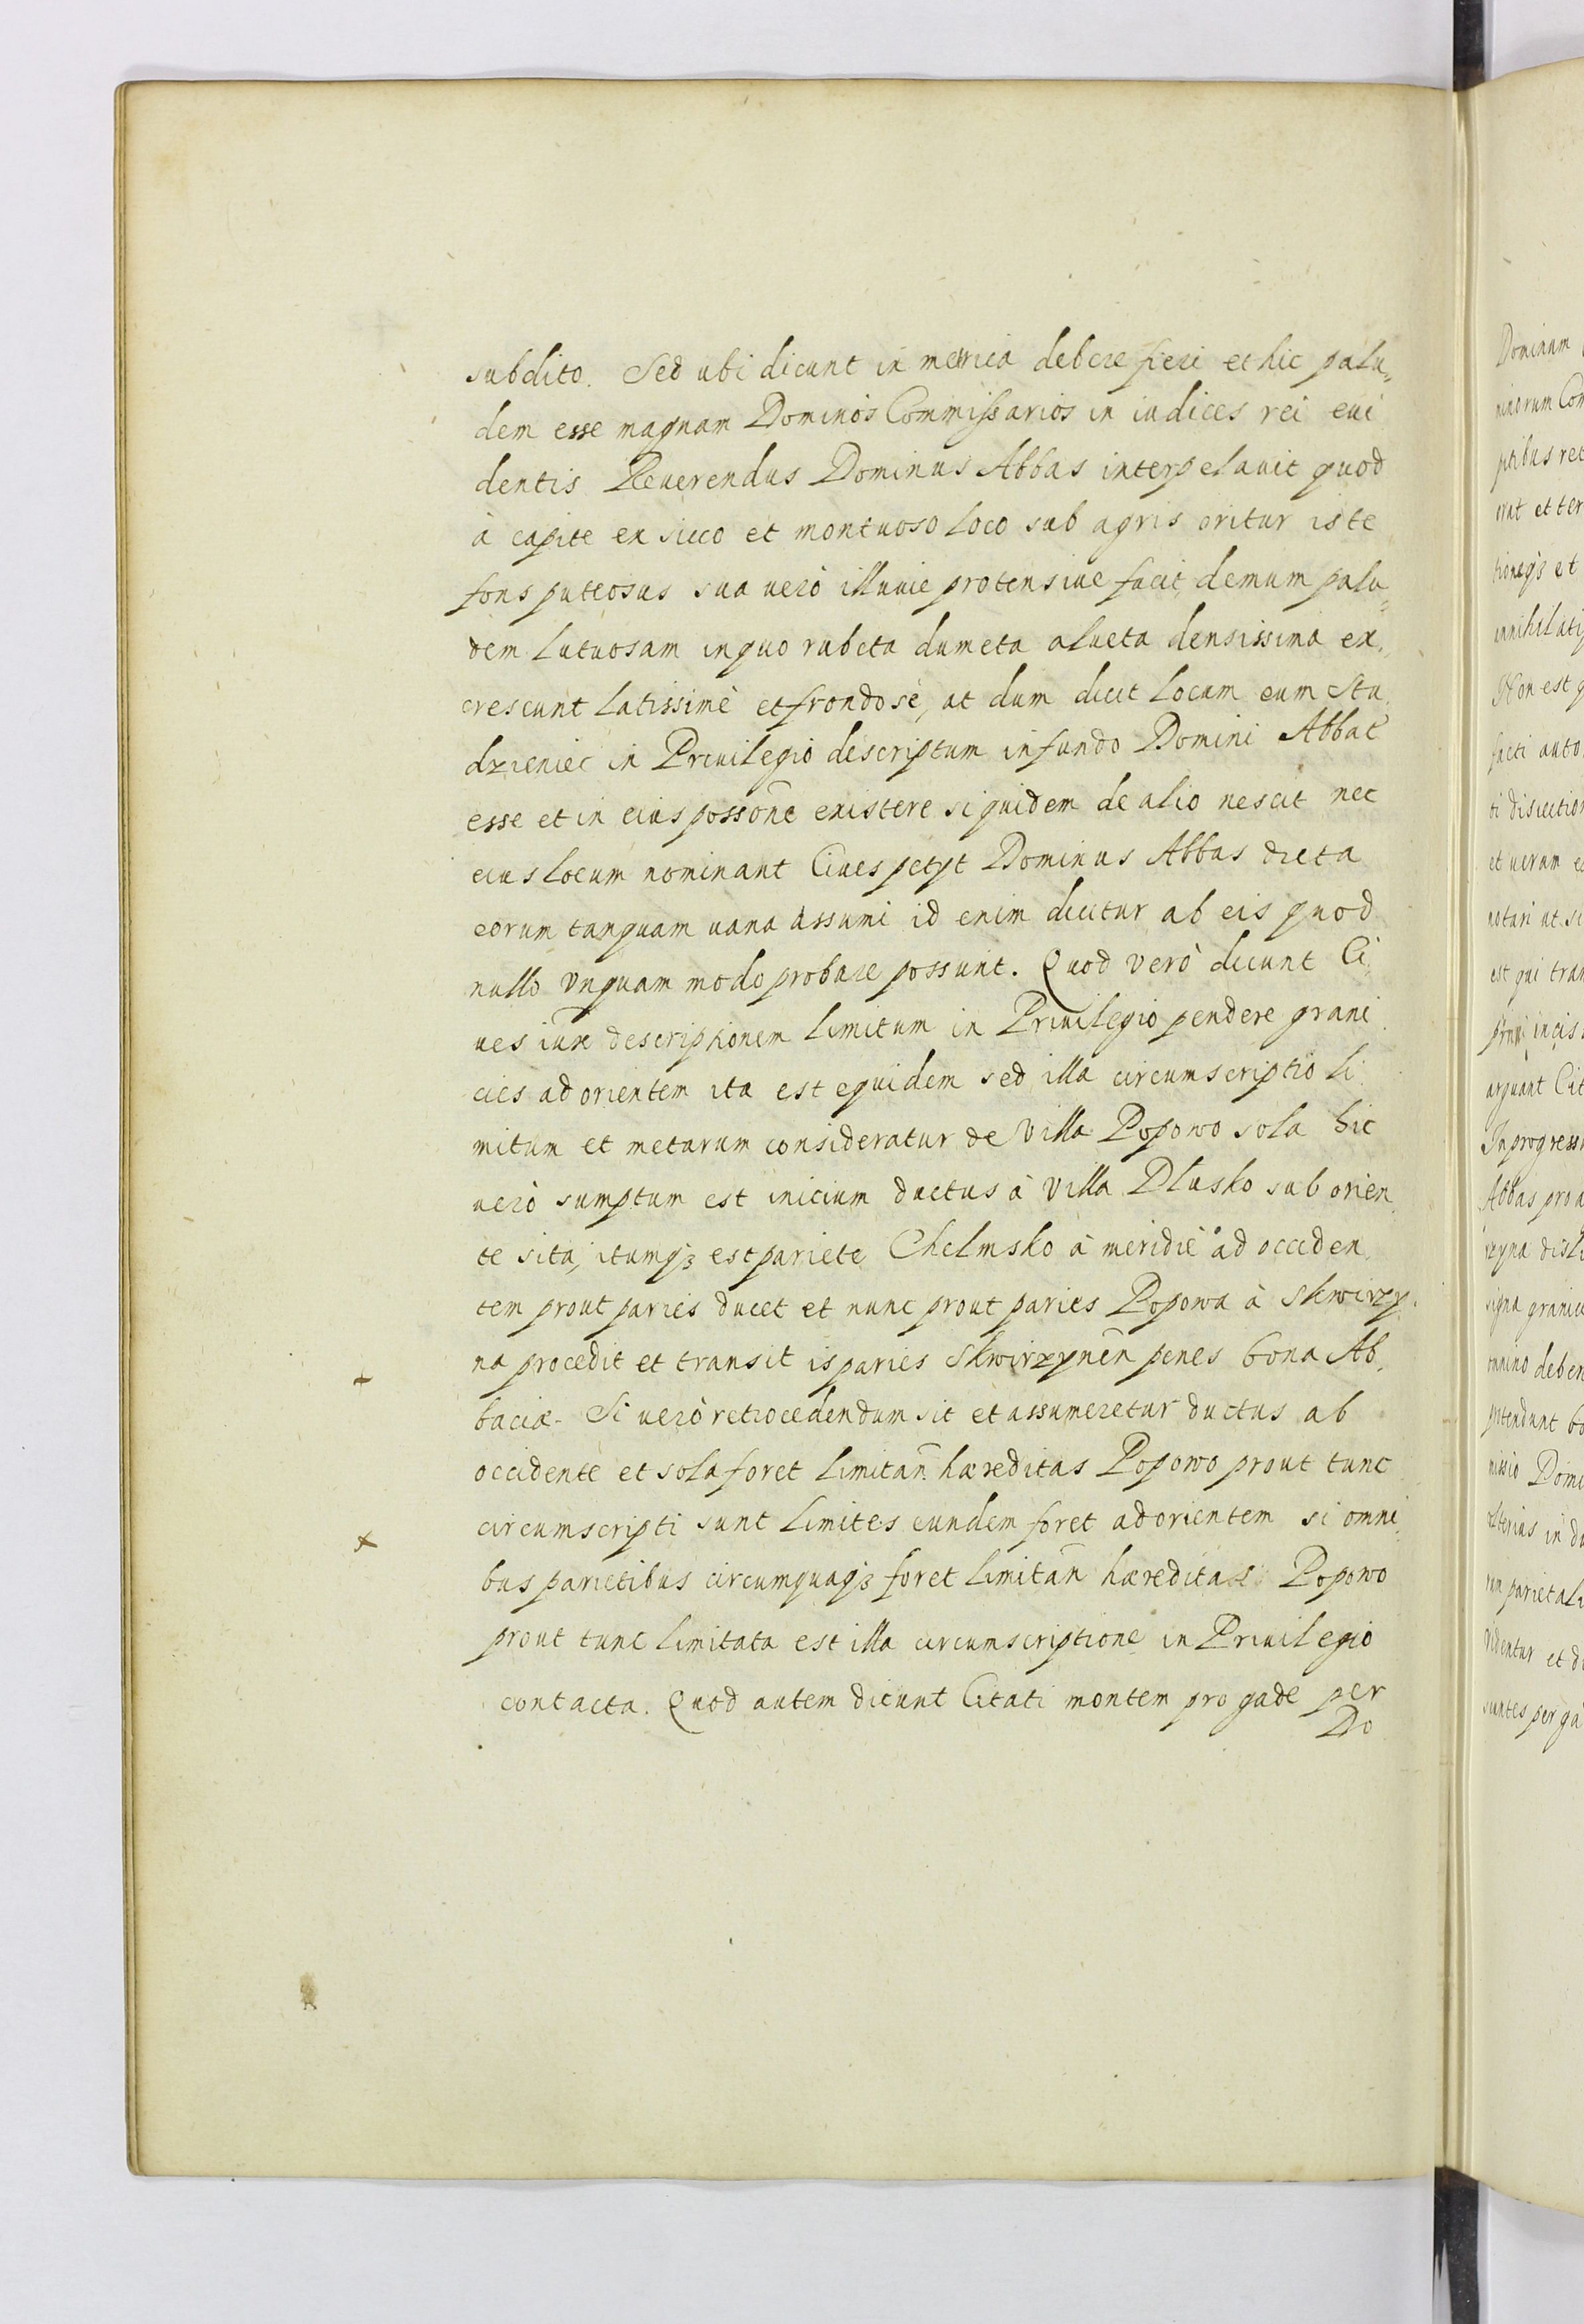 subdito. Sed ubi dicunt in merica debere fieri et hic palu„
dem esse magnam Dominos Commissarios in iudices rei eui
dentis Reuerendus Dominus Abbas interpelauit quod
à capite ex sicco et montuoso loco sub agris oritur iste
fons puteosus sua uerò illuuie protensiue facit demum palu„
dem lutuosam in quo rubeta dumeta alueta densissima ex„
crescunt latissimè et frondosè, at dum dicit locum eum Stu
dzieniec in Priuilegio descriptum in fundo Domini Abbat̃
esse et in eius possoñe existere siquidem de alio nescit nec
eius locum nominant Ciues petyt Dominus Abbas dicta
eorum tanquam uana assumi id enim dicitur ab eis quod
nullo Vnquam modo probare possunt. Quod verò dicunt Ci
ues iux̃ descriptionem limitum in Priuilegio pendere grani
cies ad orientem ita est equidem sed illa circumscriptio li
mitum et metarum consideratur de Villa Popowo sola hic
uerò sumptum est inicium ductus à Villa Dlusko sub orien
te sita, itumqȝ est pariete Chelmsko à meridie ad occiden
tem prout paries ducet et nunc prout paries Popowa à Skwirzy
na procedit et transit is paries Skwirzyneñ penes bona Ab„
baciæ. Si uerò retrocedendum sit et assumeretur ductus ab
occidente et sola foret limitañ hæreditas Popowo prout tunc
circumscripti sunt limites eundem foret ad orientem si omni„
bus parietibus circumquaqȝ foret limitañ hæreditas Popowo
prout tunc limitata est illa circumscriptione in Priuilegio
contacta. Quod autem dicunt Citati montem pro gade per
Do